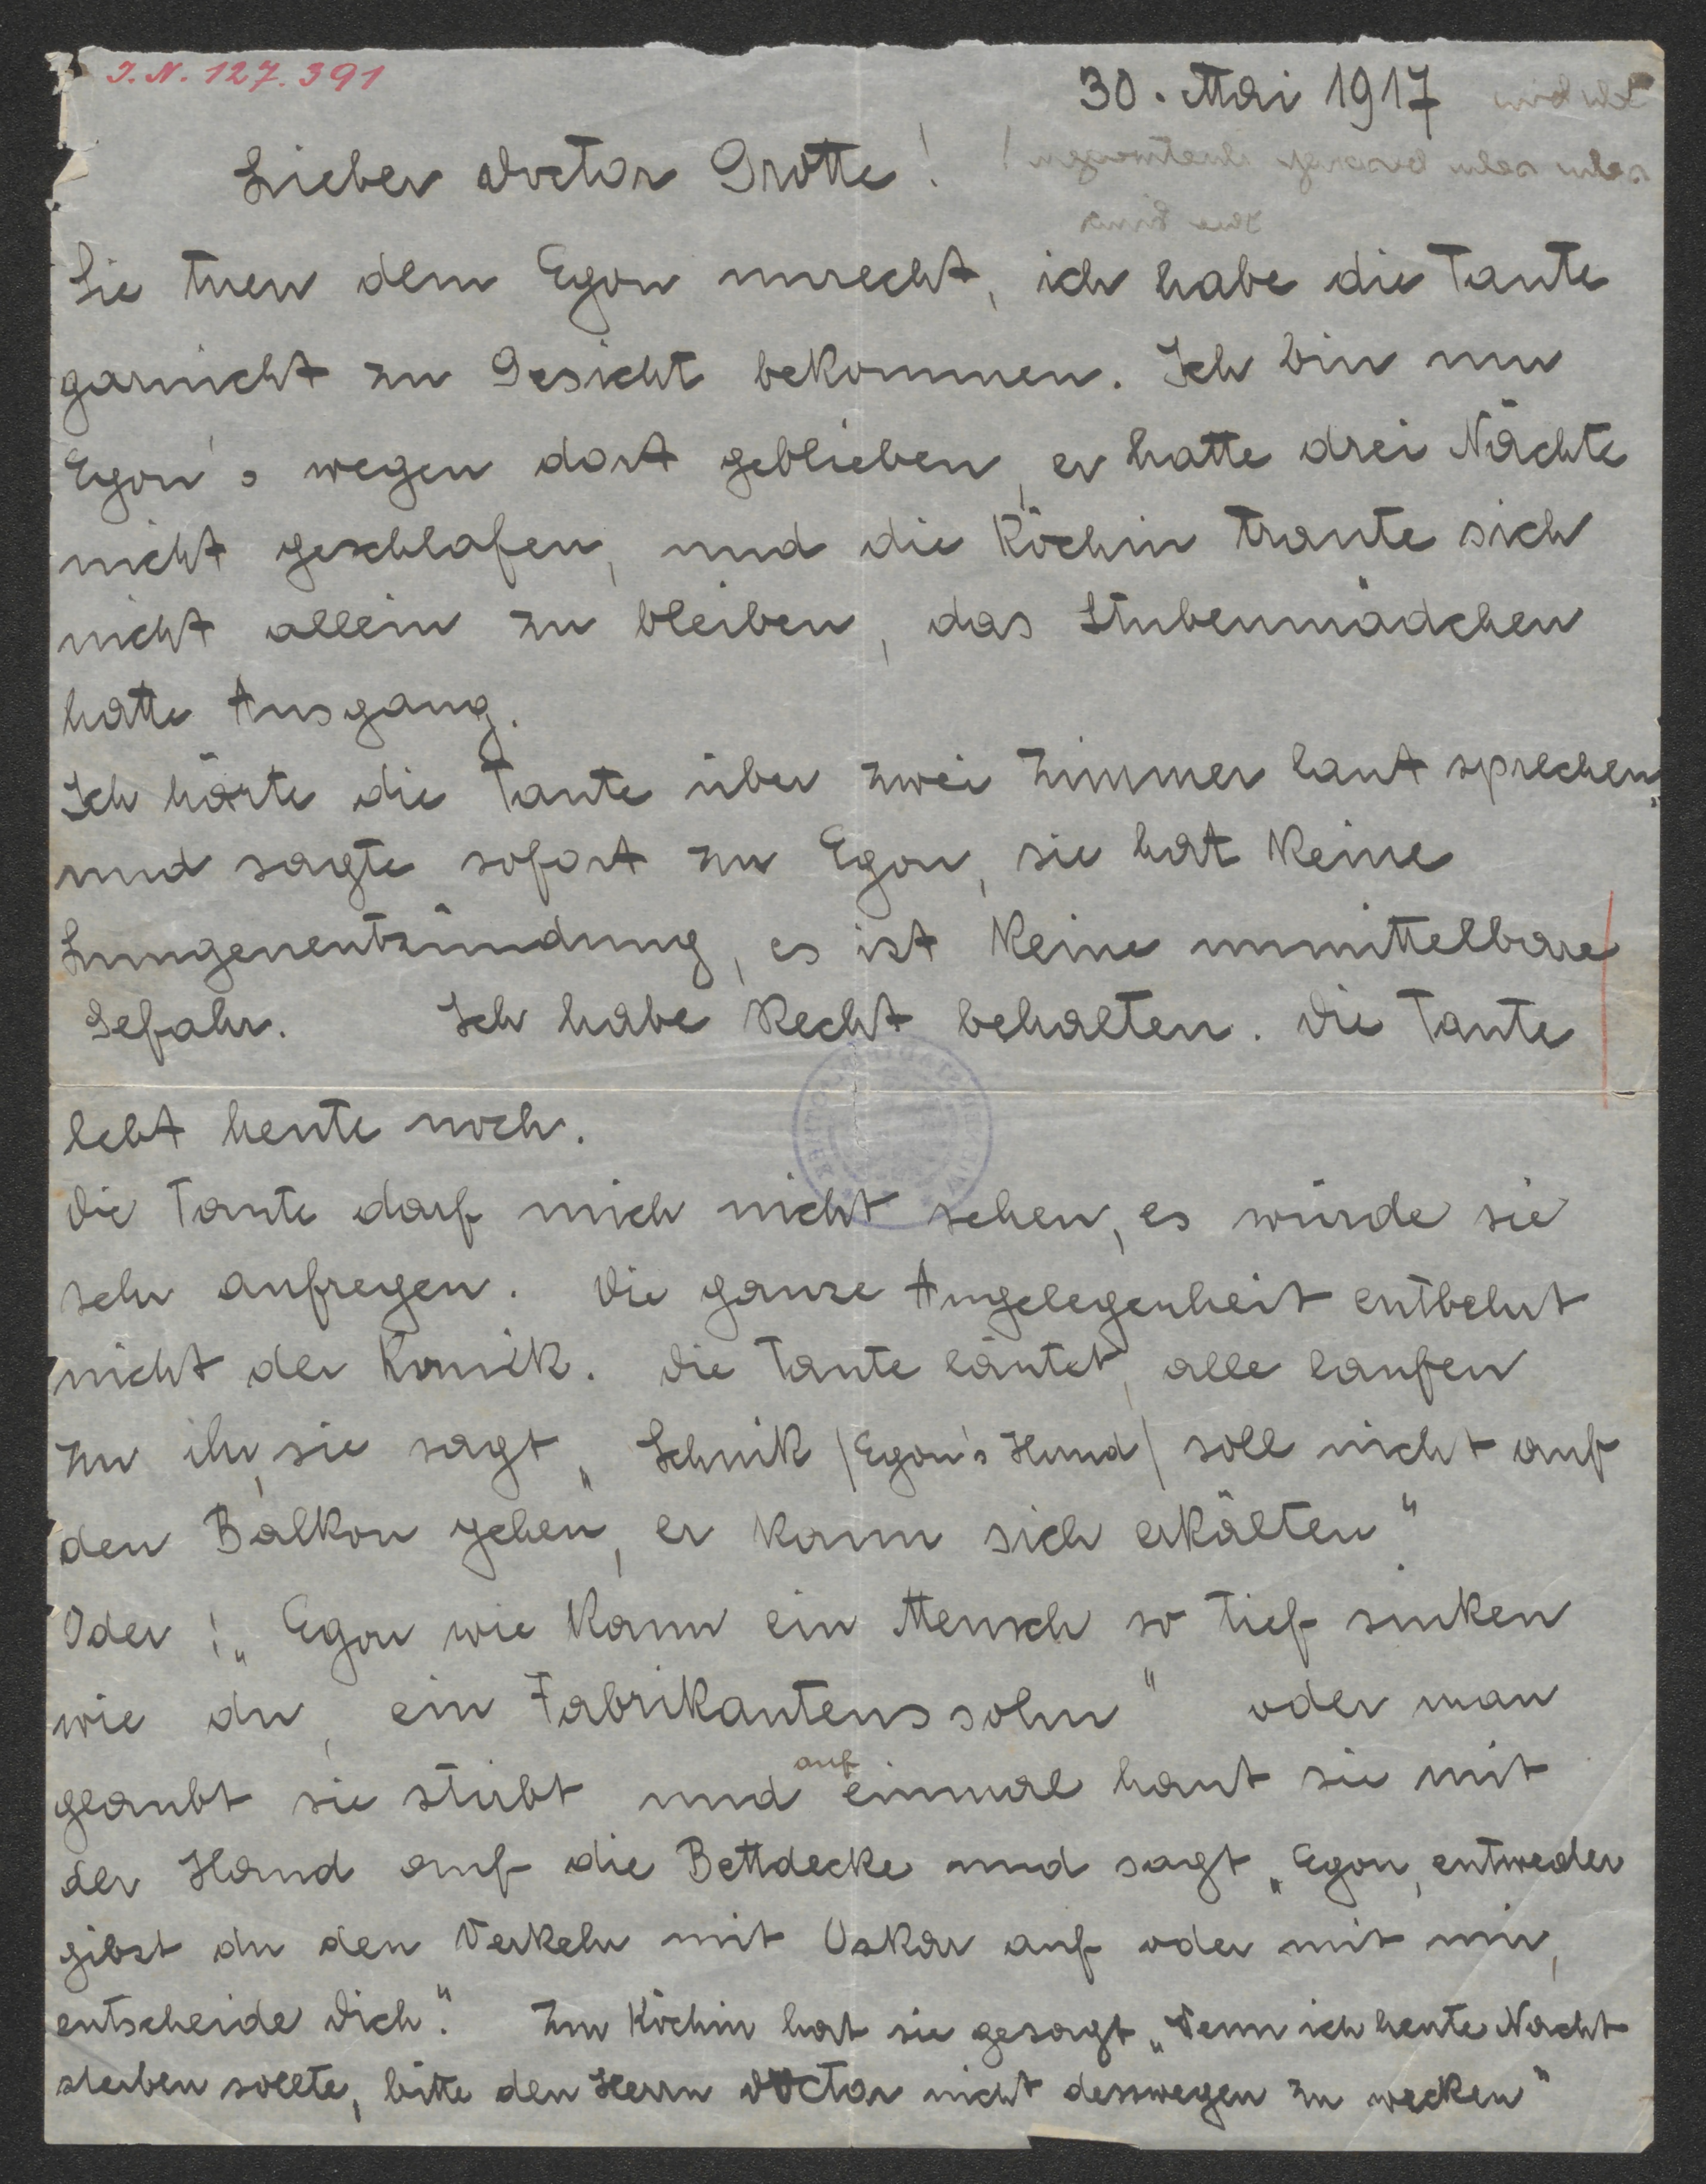 I.N. 127.391
30. Mai 1917
Lieber Doctor Grotte!
Sie tuen dem Egon unrecht, ich habe die Tante
garnicht zu Gesicht bekommen. Ich bin nur
Egon's wegen dort geblieben, er hatte drei Nächte
nicht geschlafen, und die Köchin traute sich
nicht allein zu bleiben, das Stubenmädchen
hatte Ausgang.
Ich hörte die Tante über zwei Zimmer laut sprechen,
und sagte sofort zu Egon, sie hat keine
Lungenentzündung, es ist keine unmittelbare
Gefahr. Ich habe Recht behalten. Die Tante
lebt heute noch.
Die Tante darf mich nicht sehen, es würde sie
sehr aufregen. Die ganze Angelegenheit entbehrt
nicht der Komik. Die Tante läutet, alle laufen
zu ihr, sie sagt „Schnik /Egon's Hund/ soll nicht auf
den Balkon gehen, er kann sich erkälten"
Oder! „Egon wie kann ein Mensch so tief sinken
wie du, ein Fabrikantenssohn" oder man
glaubt sie stirbt und auf einmal haut sie mit
der Hand auf die Bettdecke und sagt „Egon, entweder
gibst du den Verkehr mit Oskar auf oder mit mir,
entscheide Dich." Zur Köchin hat sie gesagt „Wenn ich heute Nacht
sterben sollte, bitte den Herrn Doctor nicht desswegen zu wecken"